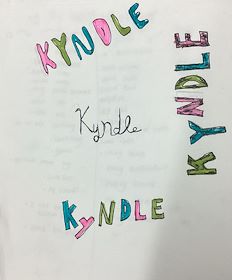 KYNDLE
KYNDLE
Kyndle
KyNDLE